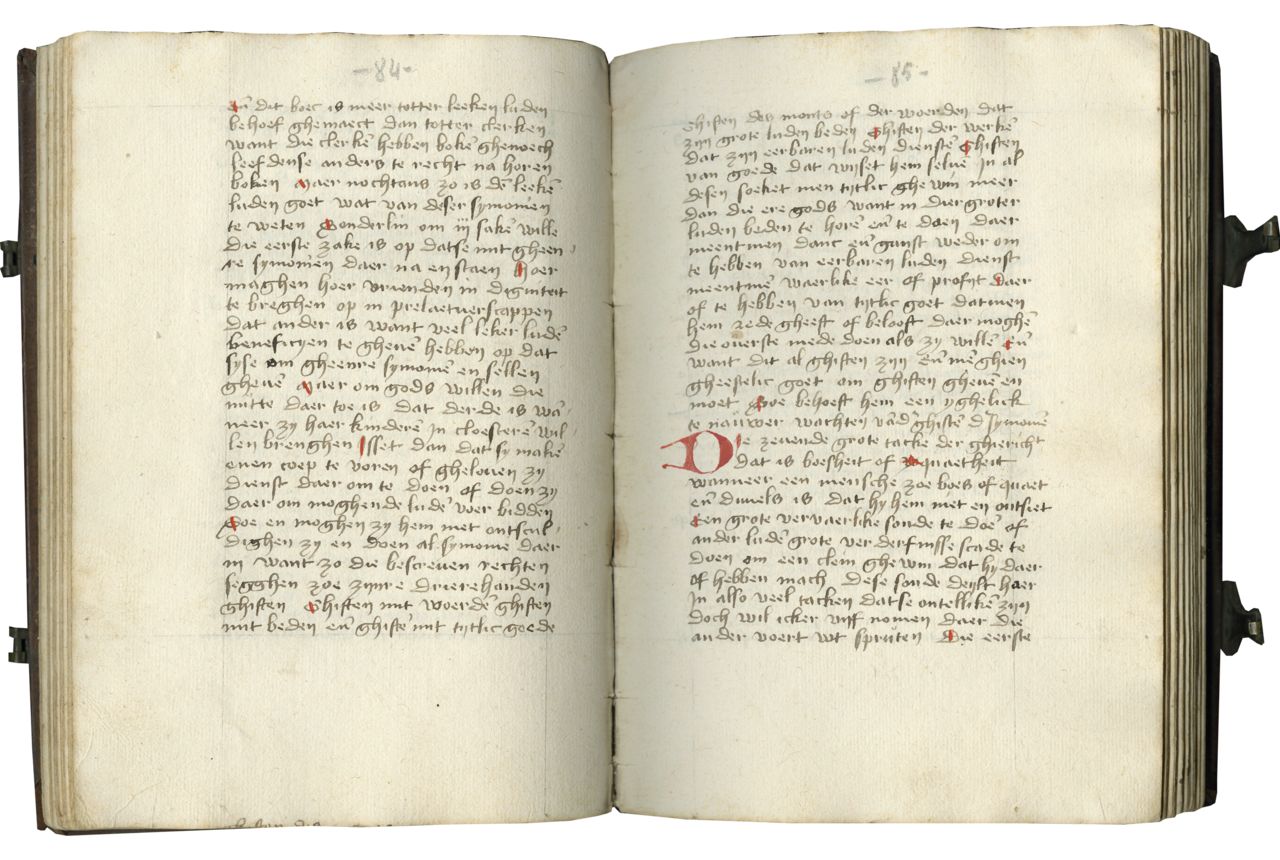 -84-
eñ dit boec is meer totter leeken luden
behoef ghemaect dan totter clerken
want die clerkē hebben bokē ghenoech
leef dense anders te recht na horen
boken Maer nochtans zo is dē leekē
luden goet wat van deser symonien
te weten Sonderlin om iij sakē wille
die eerste zake is op datse mit gheen
re symonien daer na en staen Hoer
maghen hoer vrienden in digniteit
te bregghen op in prelaetuerscappen
dat ander is want veel leker ludē
beneficyen te gheuē hebben op dat
syse om gheenre symonie en sellen
gheuē Maer om gods willen die
nutte daer toe is dat derde is wā
neer zy haer kinderē in cloesterē wil
len brenghen Isset dan dat sy makē
enen coep te voren of ghelouen zy
dienst daer om te doen of doen zy
daer om moghende ludē voer bidden
Soe en moghen zy hem niet ontscul
dighen zy en doen al symonie daer
in want zo die bescreuen rechten
segghen zoe zynre drierehanden
ghiften Ghiften mit woerdē ghiften
mit beden eñ ghiftē mit tytlic goede
-85-
Ghiften des monts of der woerden dat
zyn grote luden beden Ghiften der werkē
dat zyn eerbaren luden dienstē Ghiften
van goede dat wyset hem selue In al
desen soeket men tytlic ghewin meer
dan die ere gods want in dier groter
luden beden te horē eñ te doen daer
meent men danc eñ gunst weder om
te hebben van eerbaren luden dienst
meentmē waerlike eer of profyt Daer
of te hebben van tytlic goet datmen
hem rede gheeft of belooft daer moghē
die ouerste mede doen als zy willē Eñ
want dit al ghiften zyn eñ mē ghien
gheestelic goet om ghiften gheuē en
moet Soe behoeft hem een yghelick
te nauwer wachten vād' ghiftē d' symonē
Die zeuende grote tacke der ghiericht
dat is boesheit of quaetheit
wanneer een mensche zoe boes of quaet
eñ duuels is dat hy hem niet en ontsiet
Een grote vervaerlike sonde te doē of
ander ludē grote verderfnisse scade te
doen om een clein ghewin dat hy daer
of hebben mach Dese sonde deylt haer
In also veel tacken datse ontellikē zyn
doch wil icker vijf nomen daer die
ander voert wt sprutēn Die eerste